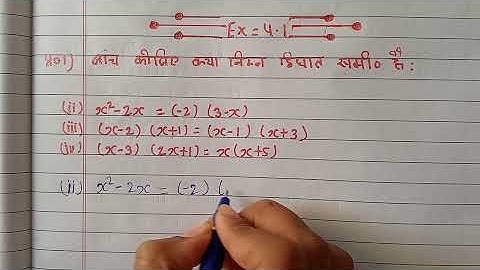 Ex = 4.1
प्र०1) जांच कीजिए क्या निम्न द्विघात समी० हैं :
(ii) x²-2x = (-2) (3-x)
(iii) (x-2) (x+1) = (x-1) (x+3)
(iv) (x-3) (2x+1) = x(x+5)
(ii) x²-2x = (-2) (